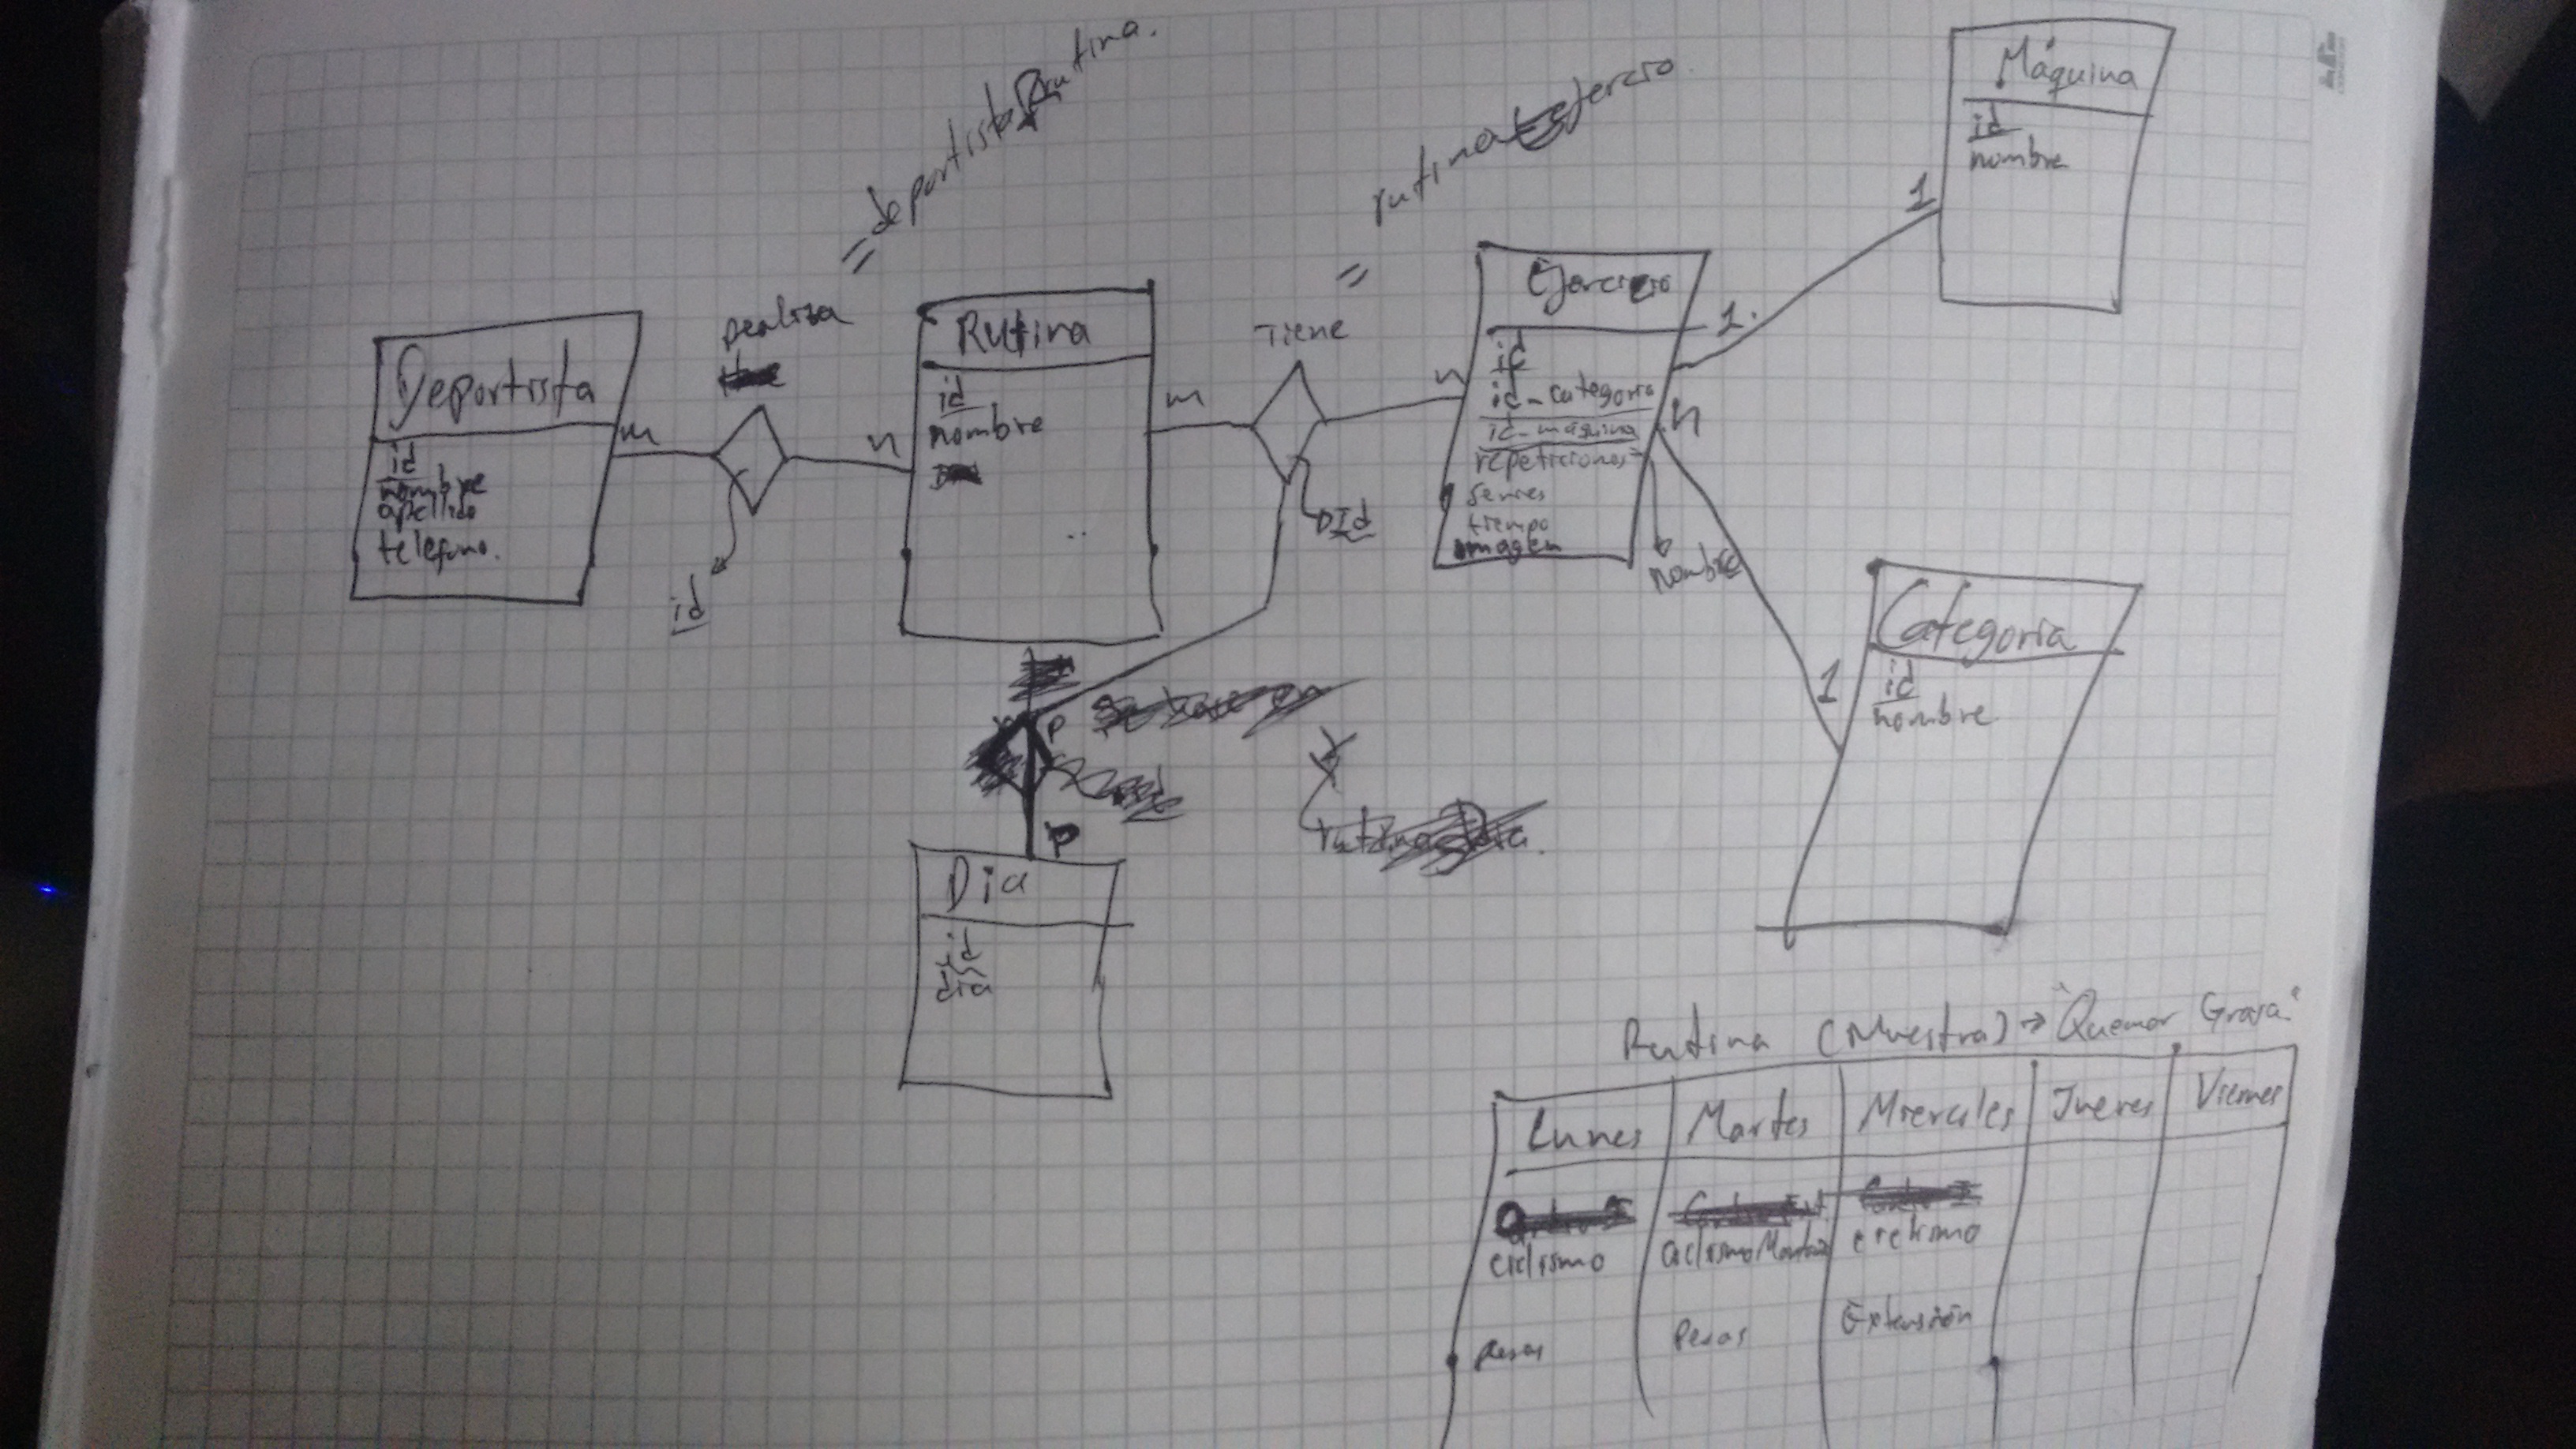 = deportistaRutina.
= rutinaejercio.
Máquina
id
nombre
1
Deportista
id
nombre
apellido
telefono.
m
realiza
id
n
Rutina
id
nombre
m
Tiene
Id
n
Ejercicio
id
id_categoria
id_máquina
repeticiones
series
tiempo
imagen
nombre
1.
n
1
Categoria
id
nombre
P
P
Dia
id
dia
Rutina (Muestra) → "Quemar Grasa"
Lunes Martes Miercoles Jueves Viernes
ciclismo
Pesas Pesas Extensión